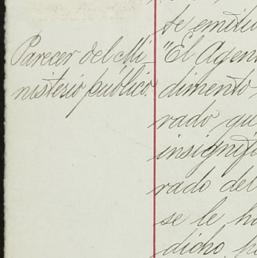 Parecer del Mi-
nisterio público.
se emitie
"El Agen
dimento,
rado qu
insignifi
rado del
se le ha
dicho,